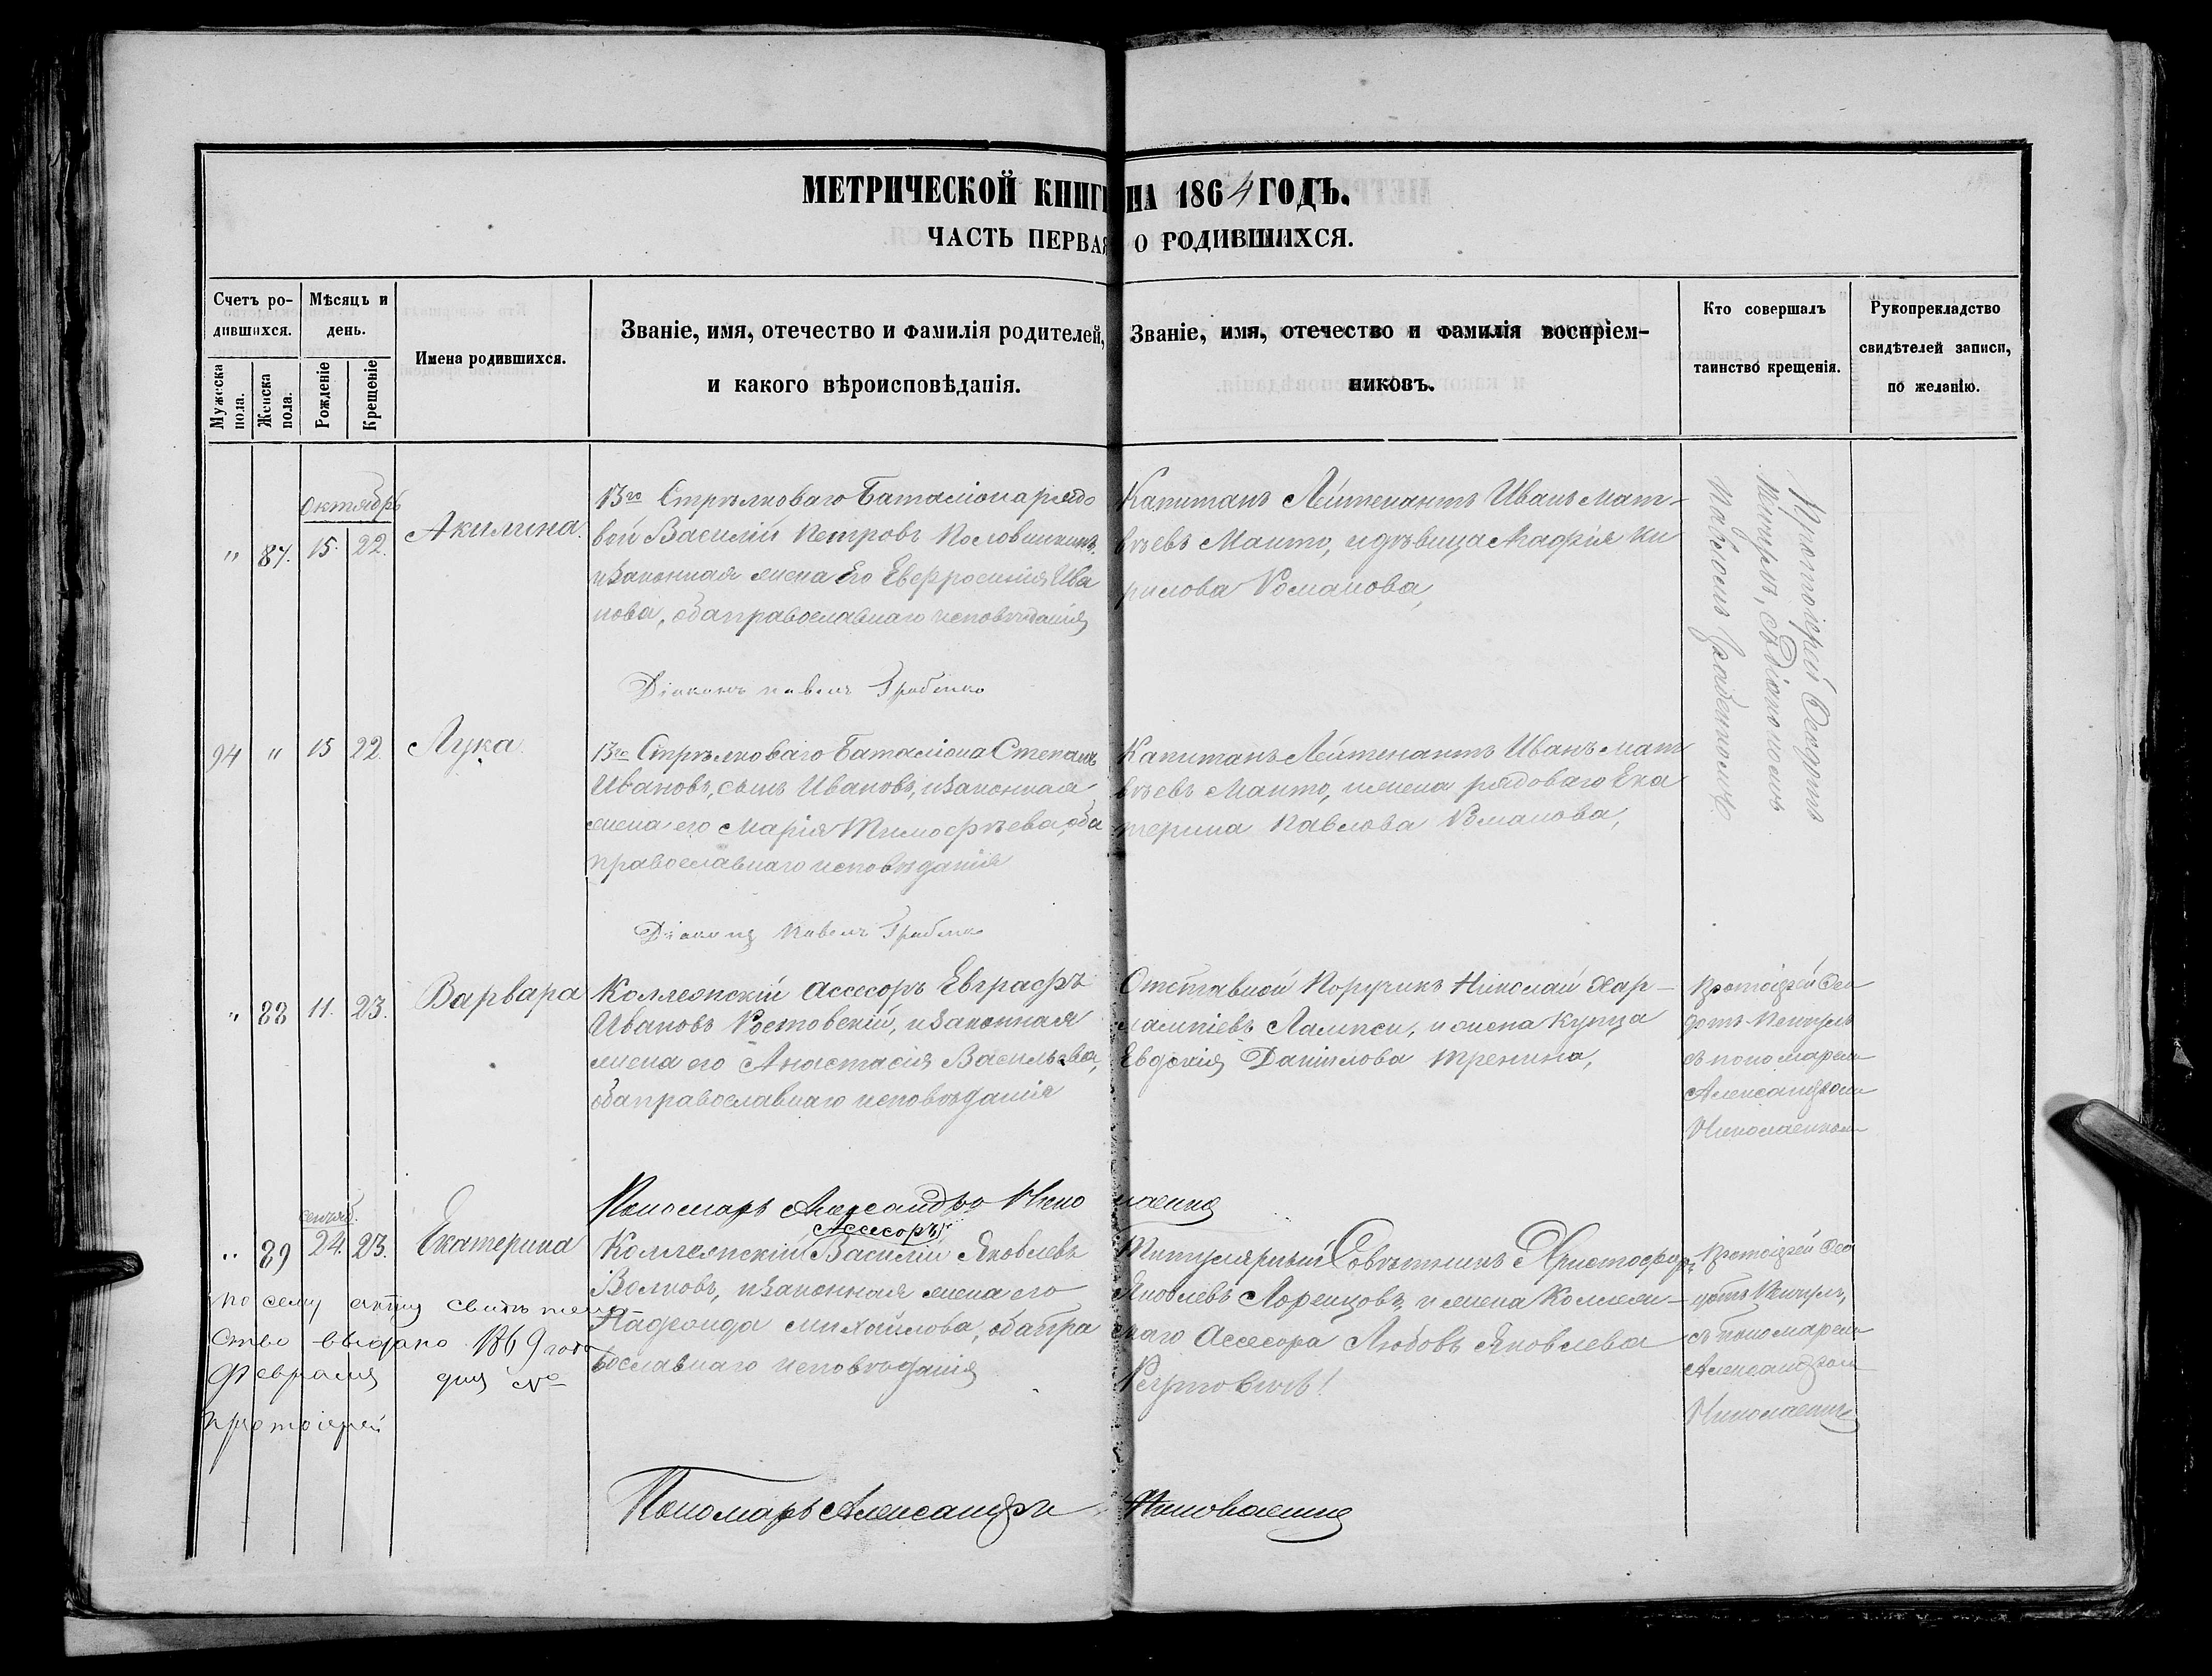 МЕТРИЧЕСКОЙ КНИГИ НА 1864 ГОДЪ.
ЧАСТЬ ПЕРВАЯ О РОДИВШИХСЯ.
Счетъ ро-
дившихся.
Мужеска пола.
Женска пола.
Мѣсяць и
день.
Рожденіе
Крещеніе
Имена родившихся.
Званіе, имя, отечество и фамилія родителей,
и какого вѣроисповѣданія.
Званіе, имя, отечество и фамилія воспріем-
никовъ.
Кто совершалъ
таинство крещенія.
Рукоприкладство
свидѣтелей записи,
по желанію.
октябрь
" 87. 15. 22. Акилина.
13го Стрѣлковаго Баталіона рядо
вой Василій Петровъ
изаконная жена Его Евфросинія Ива
нова, оба православнаго исповѣданія
Діаконъ Павелъ
Капитанъ Лейтенантъ Иванъ Мат-
вѣевъ Манто, и дѣвица Агафія Ки
рилова Романова,
Протоіерей Феодотъ
съ Діакономъ
Павломъ
94 " 15 22. Лука.
13го Стрѣлковаго Баталіона Степанъ
Ивановъ, сынъ Ивановъ, изаконная
жена его Марія Тимофѣева, оба
православнаго исповѣданія
Діаконъ Павелъ
Капитанъ Лейтенантъ Иванъ Мат
вѣевъ Манто, и жена рядоваго Ека
терина Павлова
" 88 11. 23. Варвара
Коллежскій Ассесоръ Евграфъ
Ивановъ Ростовскій, изаконная
жена его Анастасія Васильева,
оба православнаго исповѣданія
Отставной Поручикъ Николай Хар-
лампіевъ Лампси, и жена Купца
Евдокія Даніилова Тренина,
Протоіерей Фео
дотъ
съ пономаремъ
Александромъ
Николаенкомъ
Пономарь Александръ Николаенко
сентяб.
" 89 24. 23. Екатерина
Ассесоръ
Коллежскій Василій Яковлевъ
Волковъ, изаконная жена его
Надежда Михайлова, оба пра
вославнаго исповѣданія
Титулярный Совѣтникъ Христофоръ
Яковлевъ Лоренцовъ, и жена Коллеж-
скаго Ассесора Любовь Яковлева
Протоіерей Фео
дотъ
съ пономаремъ
Александромъ
Николаенко
по сему акту свидѣтель
ство выдано 1869 года
Февраля дня №
протоіерей
Пономарь Александръ Николаенко